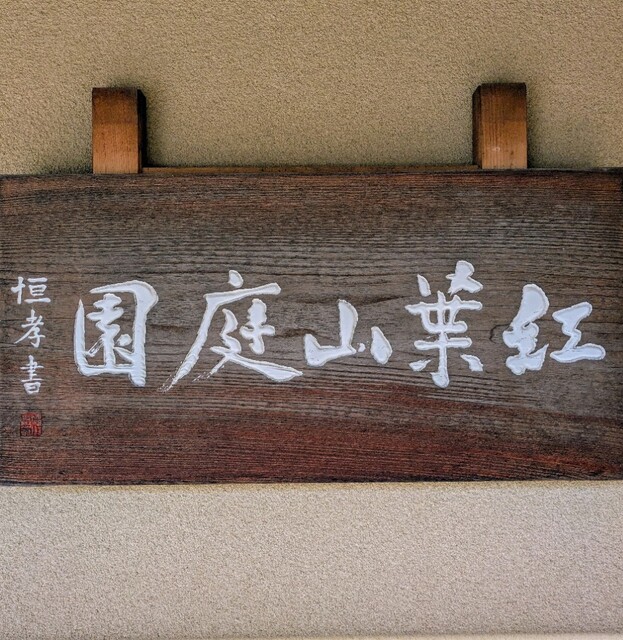 紅葉山庭園
恒孝書